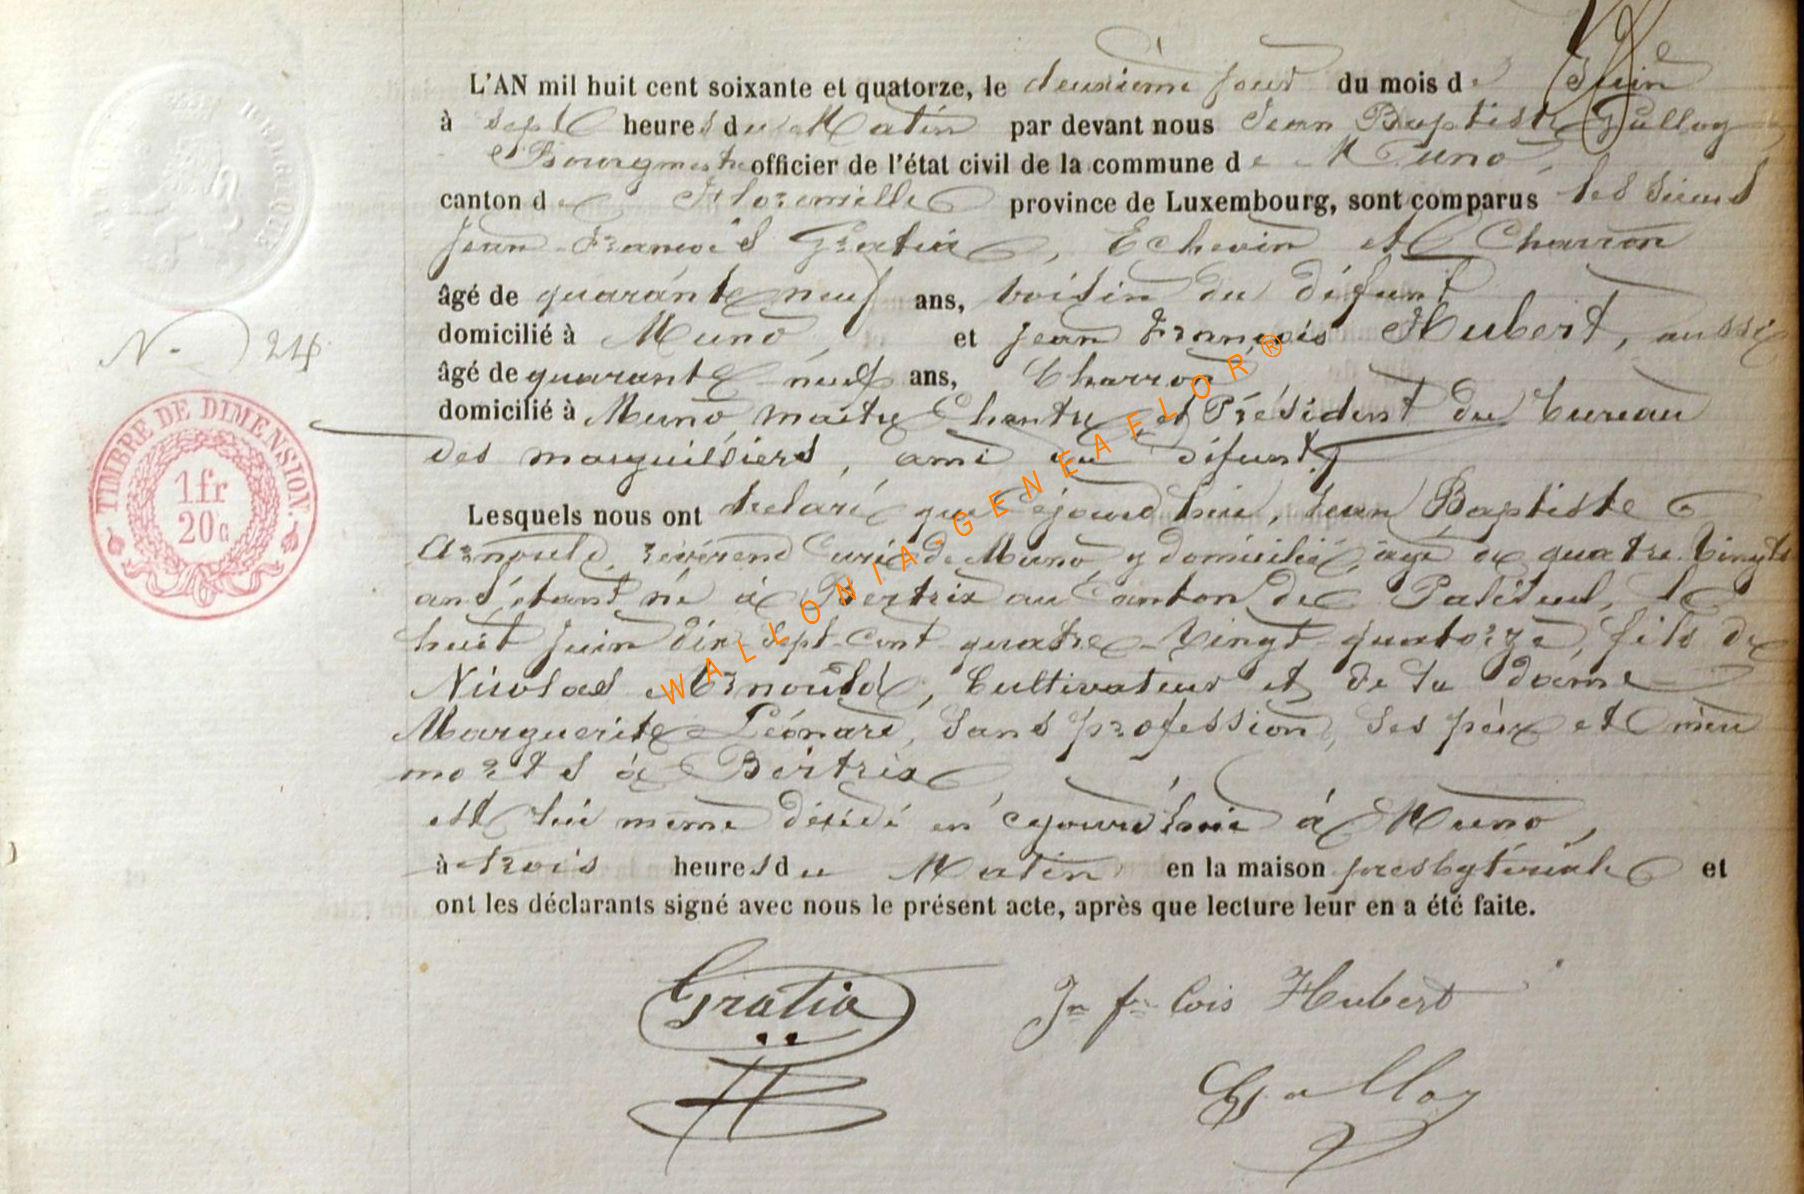 BELGIQUE
L'AN mil huit cent soixante et quatorze, le deuxième jour du mois de Juin
à sept heures du Matin par devant nous Jean Baptiste Galloy
Bourgmestre officier de l'état civil de la commune de Muno,
canton de Florenville province de Luxembourg, sont comparus les sieurs
Jean-François Gratia, Echevin et Charron
âgé de quarante neuf ans, voisin du défunt
domicilié à Muno, et Jean François Hubert, aussi
N. 24
âgé de quarante-neuf ans, Charron
domicilié à Muno, maître Chantre et Président du bureau
des marguilliers, ami du défunt,
TIMBRE DE DIMENSION.
1 fr
20 c
Lesquels nous ont déclaré que cejourd'hui, Jean Baptiste
Arnould, révérend Curé de Muno, y domicilié, âgé de quatre-vingts
ans étant né à Bertrix au Canton de Paliseul, le
huit Juin dix-sept-cent quatre-vingt quatorze, fils de
Nicolas Arnould, Cultivateur et de la dame
Marguerite Léonard, sans profession, ses père et mère
morts à Bertrix,
est lui même décédé cejourd'hui à Muno,
à trois heures du Matin en la maison presbytériale et
ont les déclarants signé avec nous le présent acte, après que lecture leur en a été faite.
Gratia
Jn fr cois Hubert
Galloy
WALLONIA-GENEAELOR®